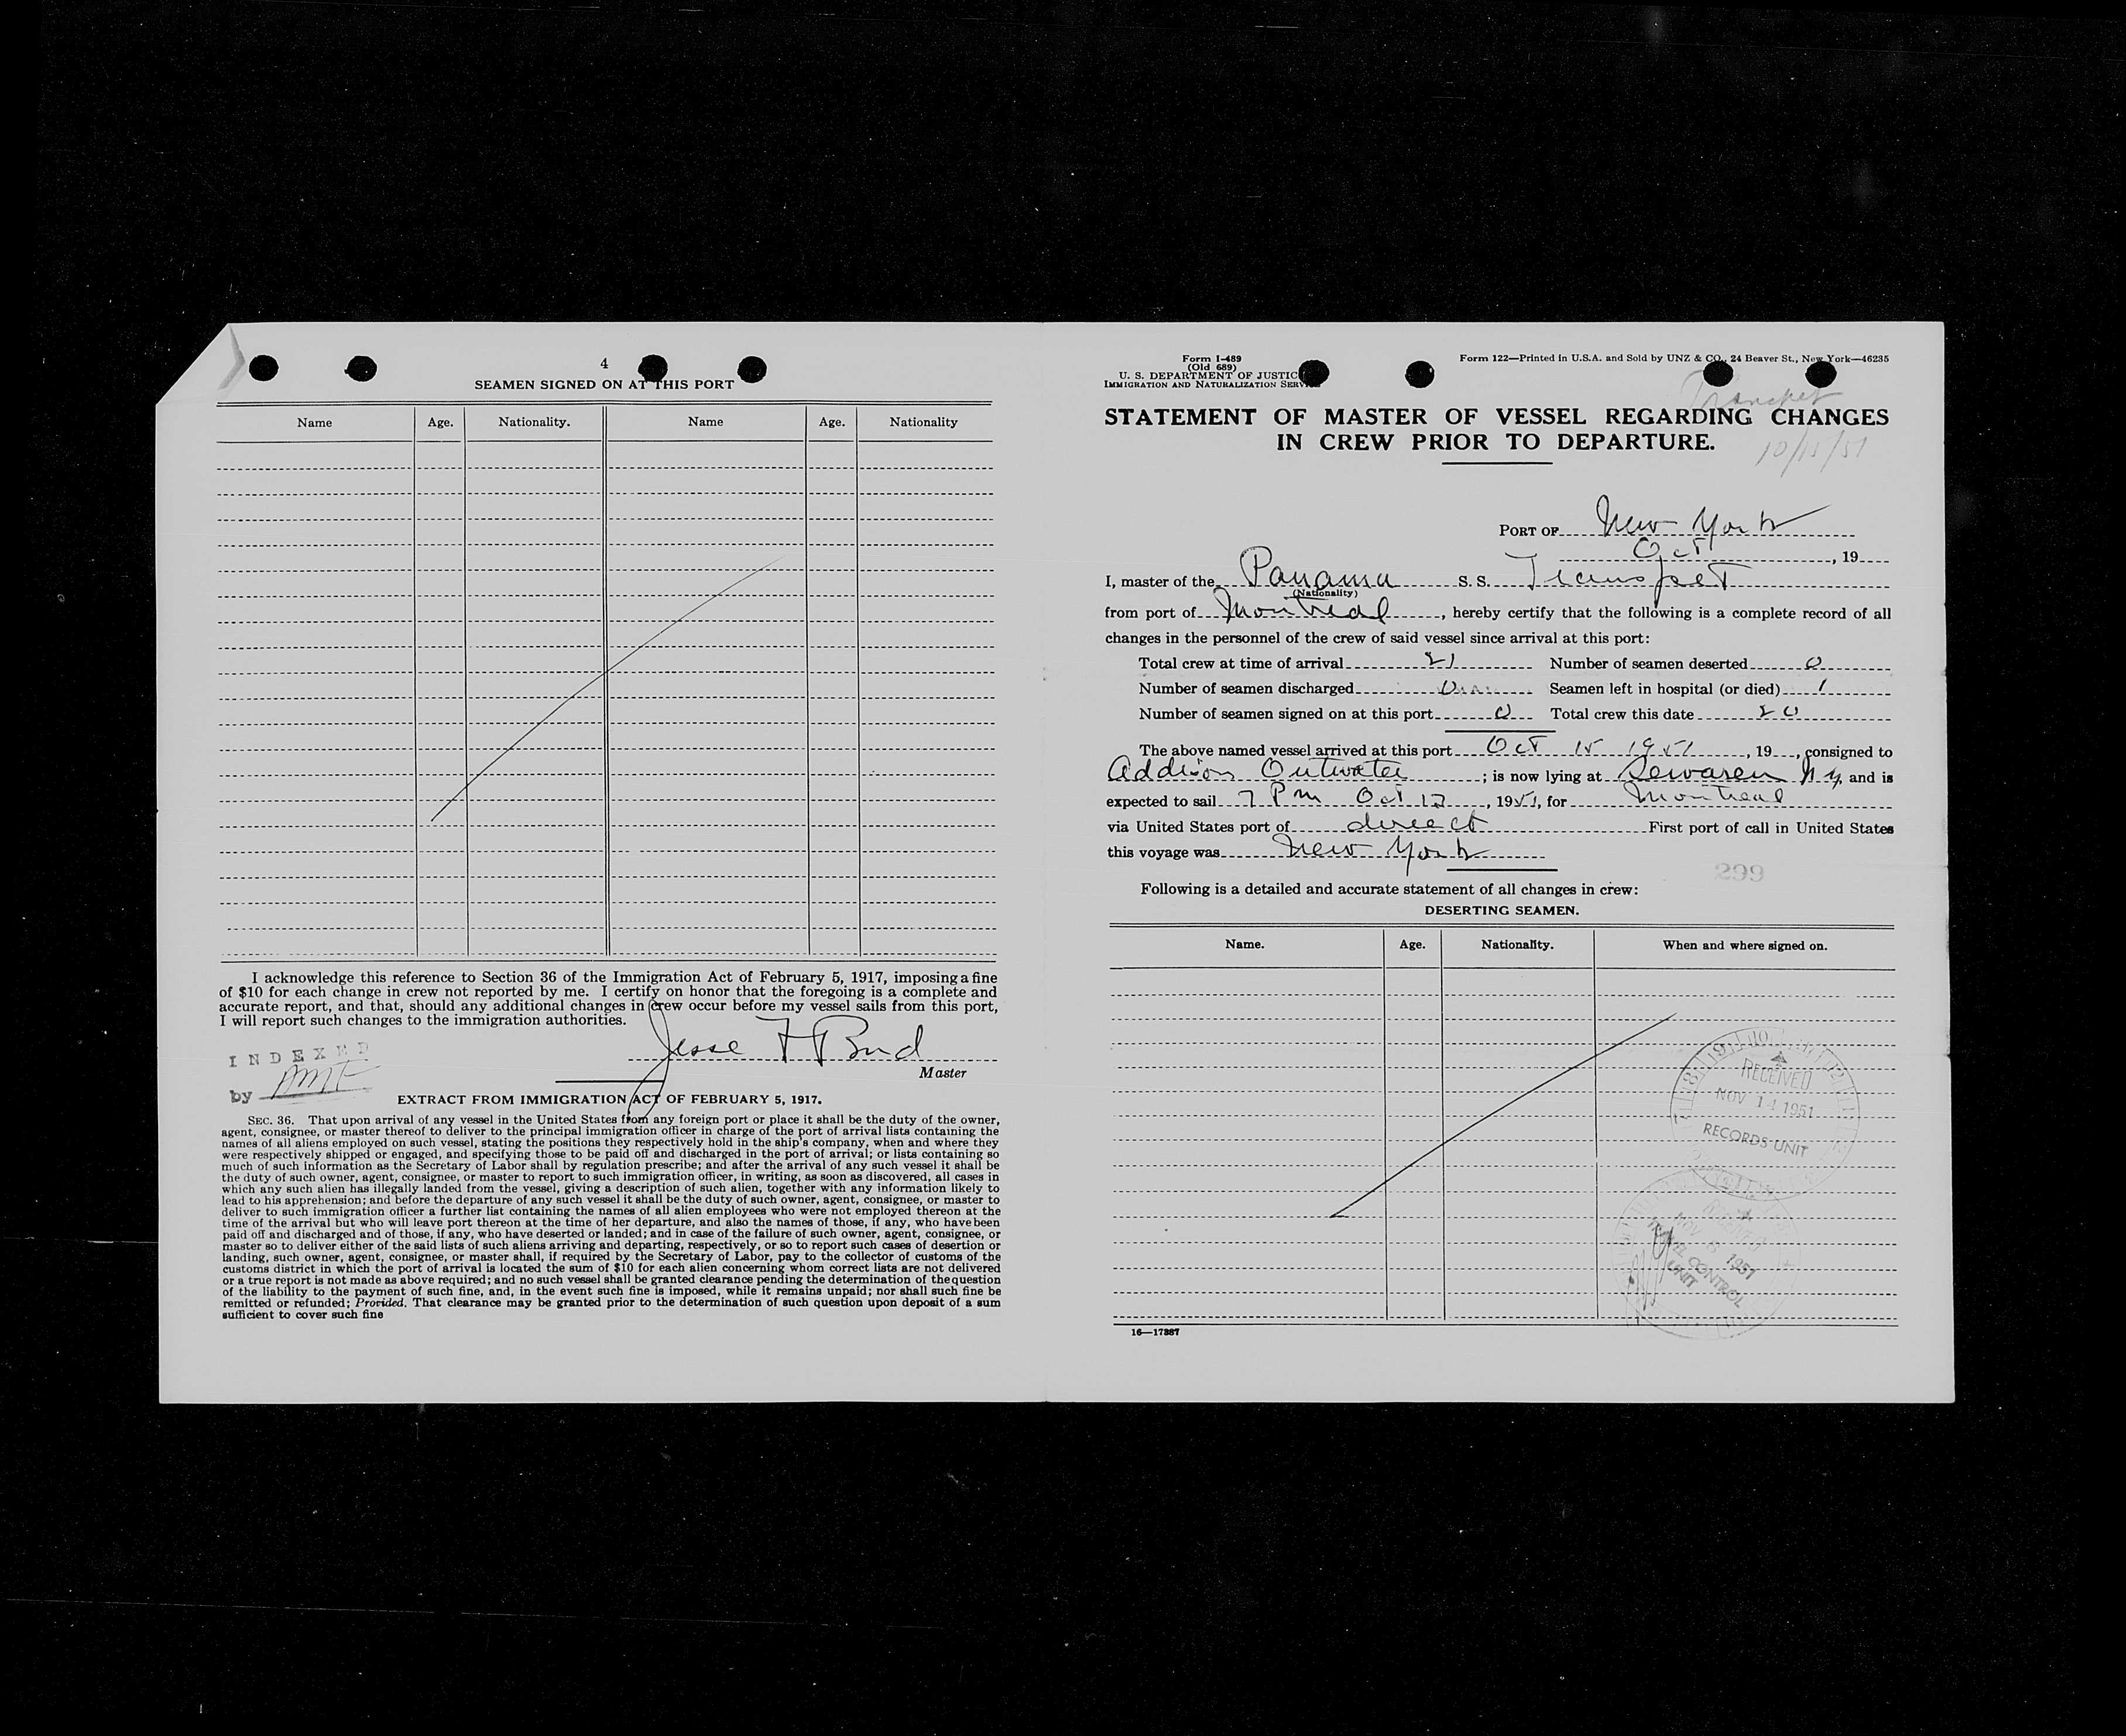 4
SEAMEN SIGNED ON AT THIS PORT
Name Age. Nationality. Name Age. Nationality
I acknowledge this reference to Section 36 of the Immigration Act of February 5, 1917, imposing a fine
of $10 for each change in crew not reported by me. I certify on honor that the foregoing is a complete and
accurate report, and that, should any additional changes in crew occur before my vessel sails from this port,
I will report such changes to the immigration authorities.
INDEXED
Jesse F
Master
by
EXTRACT FROM IMMIGRATION ACT OF FEBRUARY 5, 1917.
SEC. 36. That upon arrival of any vessel in the United States from any foreign port or place it shall be the duty of the owner,
agent, consignee, or master thereof to deliver to the principal immigration officer in charge of the port of arrival lists containing the
names of all aliens employed on such vessel, stating the positions they respectively hold in the ship's company, when and where they
were respectively shipped or engaged, and specifying those to be paid off and discharged in the port of arrival; or lists containing so
much of such information as the Secretary of Labor shall by regulation prescribe; and after the arrival of any such vessel it shall be
the duty of such owner, agent, consignee, or master to report to such immigration officer, in writing, as soon as discovered, all cases in
which any such alien has illegally landed from the vessel, giving a description of such alien, together with any information likely to
lead to his apprehension; and before the departure of any such vessel it shall be the duty of such owner, agent, consignee, or master to
deliver to such immigration officer a further list containing the names of all alien employees who were not employed thereon at the
time of the arrival but who will leave port thereon at the time of her departure, and also the names of those, if any, who have been
paid off and discharged and of those, if any, who have deserted or landed; and in case of the failure of such owner, agent, consignee, or
master so to deliver either of the said lists of such aliens arriving and departing, respectively, or so to report such cases of desertion or
landing, such owner, agent, consignee, or master shall, if required by the Secretary of Labor, pay to the collector of customs of the
customs district in which the port of arrival is located the sum of $10 for each alien concerning whom correct lists are not delivered
or a true report is not made as above required; and no such vessel shall be granted clearance pending the determination of the question
of the liability to the payment of such fine, and, in the event such fine is imposed, while it remains unpaid; nor shall such fine be
remitted or refunded; Provided, That clearance may be granted prior to the determination of such question upon deposit of a sum
sufficient to cover such fine
Form I-489
(Old 689)
U. S. DEPARTMENT OF JUSTICE
IMMIGRATION AND NATURALIZATION SERVICE
Form 122—Printed in U.S.A. and Sold by UNZ & CO., 24 Beaver St., New York—46235
STATEMENT OF MASTER OF VESSEL REGARDING CHANGES
IN CREW PRIOR TO DEPARTURE.
10/15/51
PORT OF New York
Oct , 19
I, master of the Panama S. S.
(Nationality)
from port of Montreal, hereby certify that the following is a complete record of all
changes in the personnel of the crew of said vessel since arrival at this port:
Total crew at time of arrival 21 Number of seamen deserted 0
Number of seamen discharged 0 Seamen left in hospital (or died) 1
Number of seamen signed on at this port 0 Total crew this date 20
The above named vessel arrived at this port Oct 15 1951, 19, consigned to
Addison Outwater; is now lying at Sewaren and is
expected to sail 7 Pm Oct, 1951, for Montreal
via United States port of direct First port of call in United States
this voyage was New York
299
Following is a detailed and accurate statement of all changes in crew:
DESERTING SEAMEN.
Name. Age. Nationality. When and where signed on.
RECEIVED
NOV 14 1951
RECORDS UNIT
1951
CONTROL
UNIT
16—17887